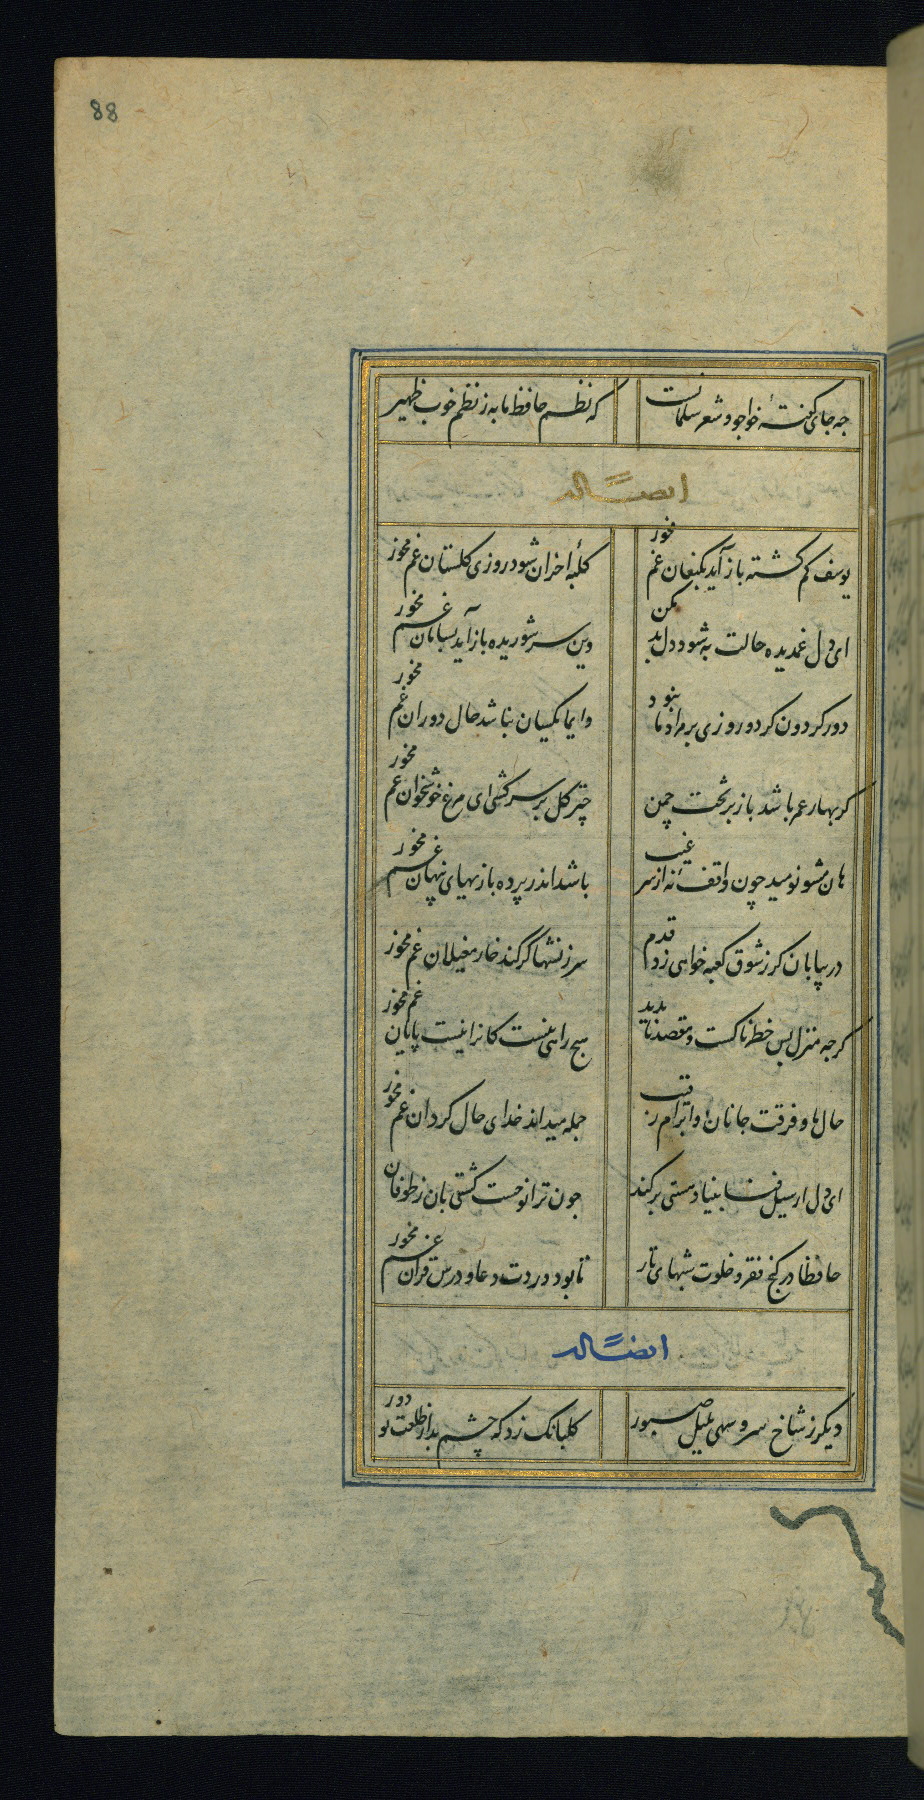 88
جه جای گفتهٔ خواجو و شعر سلمانست که نظم حافظ ما به ز نظم خوب ظهیر
ایضاً له
یوسف کم کشته باز آید بکنعان غم مخور کلبهٔ احزان شود روزی کلستان غم مخور
ای دل غمدیده حالت به شود دل بد مکن وین سر شوریده باز آید بسامان غم مخور
دور کردون کر دو روزی بر مراد ما نبود دایما یکسان نباشد حال دوران غم مخور
کر بهار عمر باشد باز بر تخت چمن چتر کل بر سر کشی ای مرغ خوشخوان غم مخور
هان مشو نومید چون واقف نهٔ از سر غیب باشد اندر پرده بازیهای پنهان غم مخور
در بیابان کر ز شوق کعبه خواهی زد قدم سرزنشها گر کند خار مغیلان غم مخور
کرجه منزل بس خطرناکست و مقصد ناپدید هیج راهی نیست کانرا نیست پایان غم مخور
حال ما و فرقت جانان و ابرام رقیب جمله میداند خدای حال کردان غم مخور
ای دل ار سیل فنا بنیاد هستی برکند جون ترا نوحست کشتی بان ز طوفان غم مخور
حافظا در کنج فقر و خلوت شبهای تار تا بود وردت دعا و درس قران غم مخور
ایضاً له
دیکر ز شاخ سرو سهی بلبل صبور کلبانک زد که چشم بد از طلعت تو دور